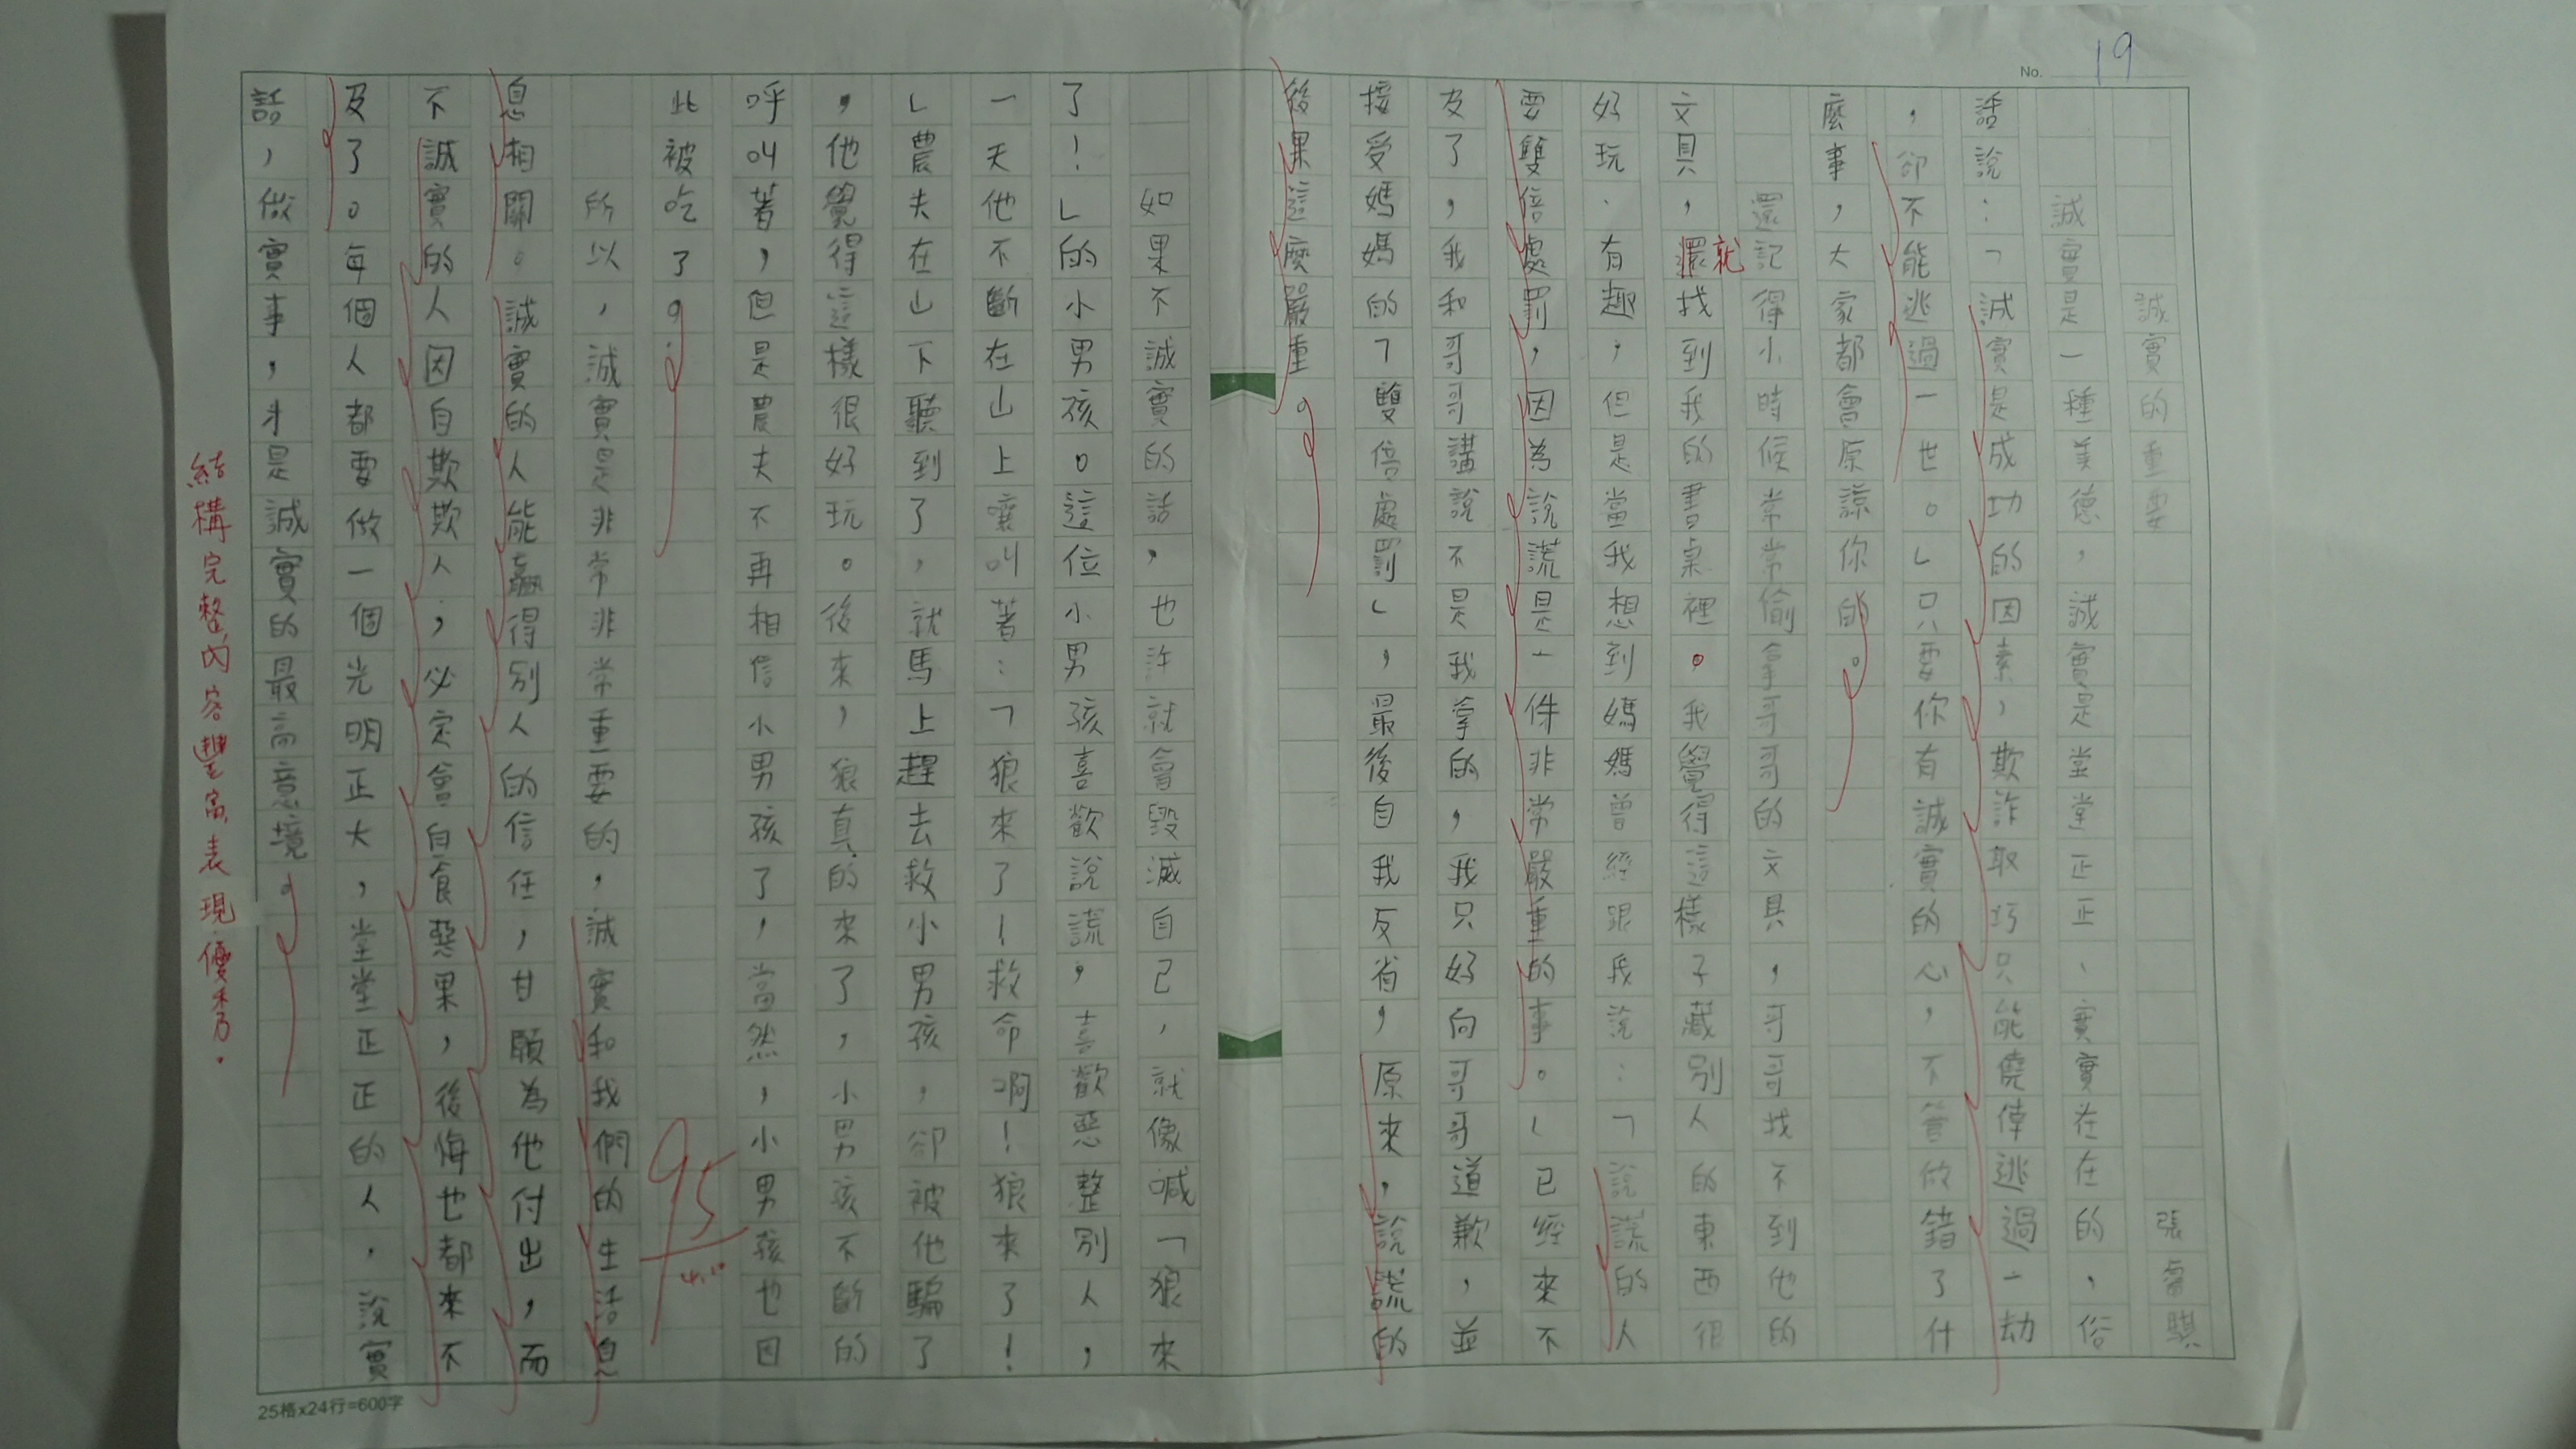 No. 19
誠實的重要 張睿騏
誠實是一種美德，誠實是堂堂正正、實實在在的，俗
話說：「誠實是成功的因素，欺詐取巧只能僥倖逃過一劫
，卻不能逃過一世。」只要你有誠實的心，不管做錯了什
麼事，大家都會原諒你的。
還記得小時候常常偷拿哥哥的文具，哥哥找不到他的
文具，還就找到我的書桌裡。我覺得這樣子藏別人的東西很
好玩、有趣，但是當我想到媽媽曾經跟我說：「說謊的人
要雙倍處罰，因為說謊是一件非常嚴重的事。」已經來不
及了，我和哥哥講說不是我拿的，我只好向哥哥道歉，並
接受媽媽的「雙倍處罰」，最後自我反省，原來，說謊的
後果這麼嚴重。
如果不誠實的話，也許就會毀滅自己，就像喊「狼來
了！」的小男孩。這位小男孩喜歡說謊，喜歡惡整別人，
一天他不斷在山上嚷叫著：「狼來了！救命啊！狼來了！
」農夫在山下聽到了，就馬上趕去救小男孩，卻被他騙了
，他覺得這樣很好玩。後來，狼真的來了，小男孩不斷的
呼叫著，但是農夫不再相信小男孩了，當然，小男孩也因
此被吃了。
95
所以，誠實是非常非常重要的，誠實和我們的生活息
息相關。誠實的人能贏得別人的信任，甘願為他付出，而
不誠實的人因自欺欺人，必定會自食惡果，後悔也都來不
及了。每個人都要做一個光明正大，堂堂正正的人，說實
話，做實事，才是誠實的最高意境。
結構完整，內容豐富，表現優秀。
25格x24行=600字